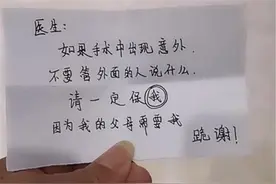 医生：
如果手术中出现意外.
不要管外面的人说什么.
请一定保我
因为我的父母需要我
跪谢！